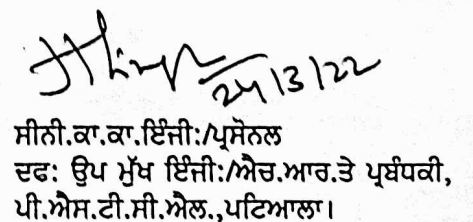 24/3/22
ਸੀਨੀ.ਕਾ.ਕਾ.ਇੰਜੀ:/ਪ੍ਰਸੋਨਲ
ਦਫ: ਉਪ ਮੁੱਖ ਇੰਜੀ:/ਐਚ.ਆਰ.ਤੇ ਪ੍ਰਬੰਧਕੀ,
ਪੀ.ਐਸ.ਟੀ.ਸੀ.ਐਲ.,ਪਟਿਆਲਾ।